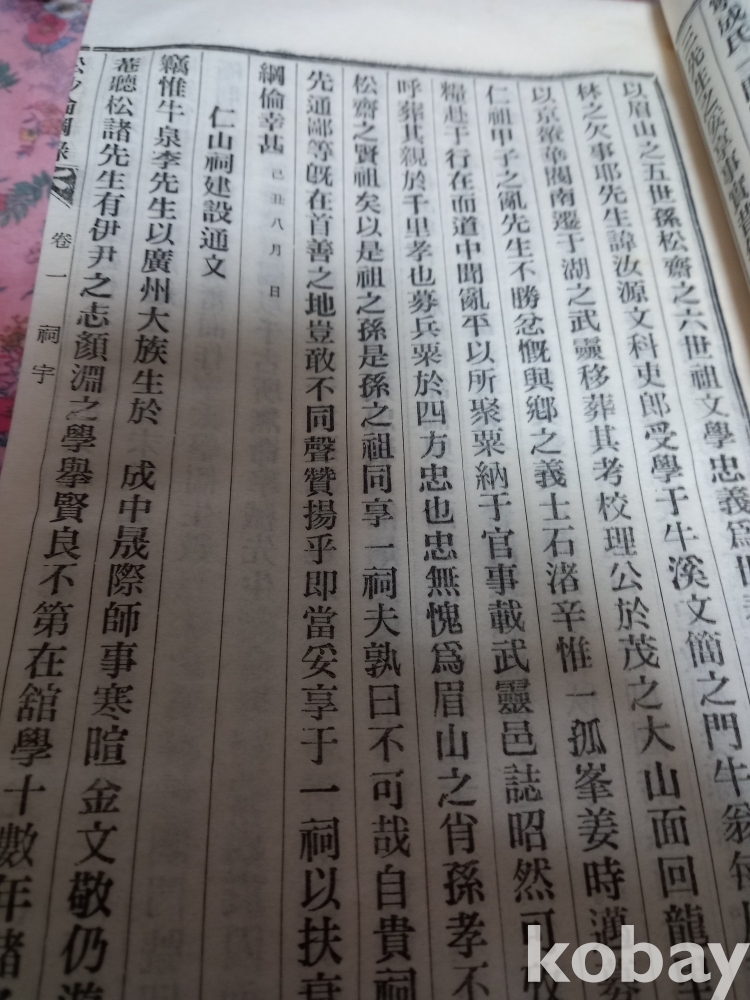 三先生之
以眉山之五世孫松齋之六世祖文學忠義爲世
林之欠事耶先生諱汝源文科吏郎受學于牛溪文簡之門牛翁每
以京籟奄閟南遷于湖之武靈移葬其考校理公於茂之大山面回龍
仁祖甲子之亂先生不勝忿慨與鄕之義士石渚辛惟一孤峯姜時邁募
糧赴于行在而道中聞亂平以所聚粟納于官事載武靈邑誌昭然可
呼葬其親於千里孝也募兵粟於四方忠也忠無愧爲眉山之肖孫孝不
松齋之賢祖矣以是祖之孫是孫之祖同享一祠夫孰曰不可哉自貴祠
先通鄙等旣在首善之地豈敢不同聲贊揚乎即當妥享于一祠以扶
綱倫幸甚 己丑八月 日
仁山祠建設通文
竊惟牛泉李先生以廣州大族生於 成中晟際師事寒暄金文敬仍
菴聽松諸先生有伊尹之志顏淵之學擧賢良不第在舘學十數年諸
卷一 祠宇
kobay